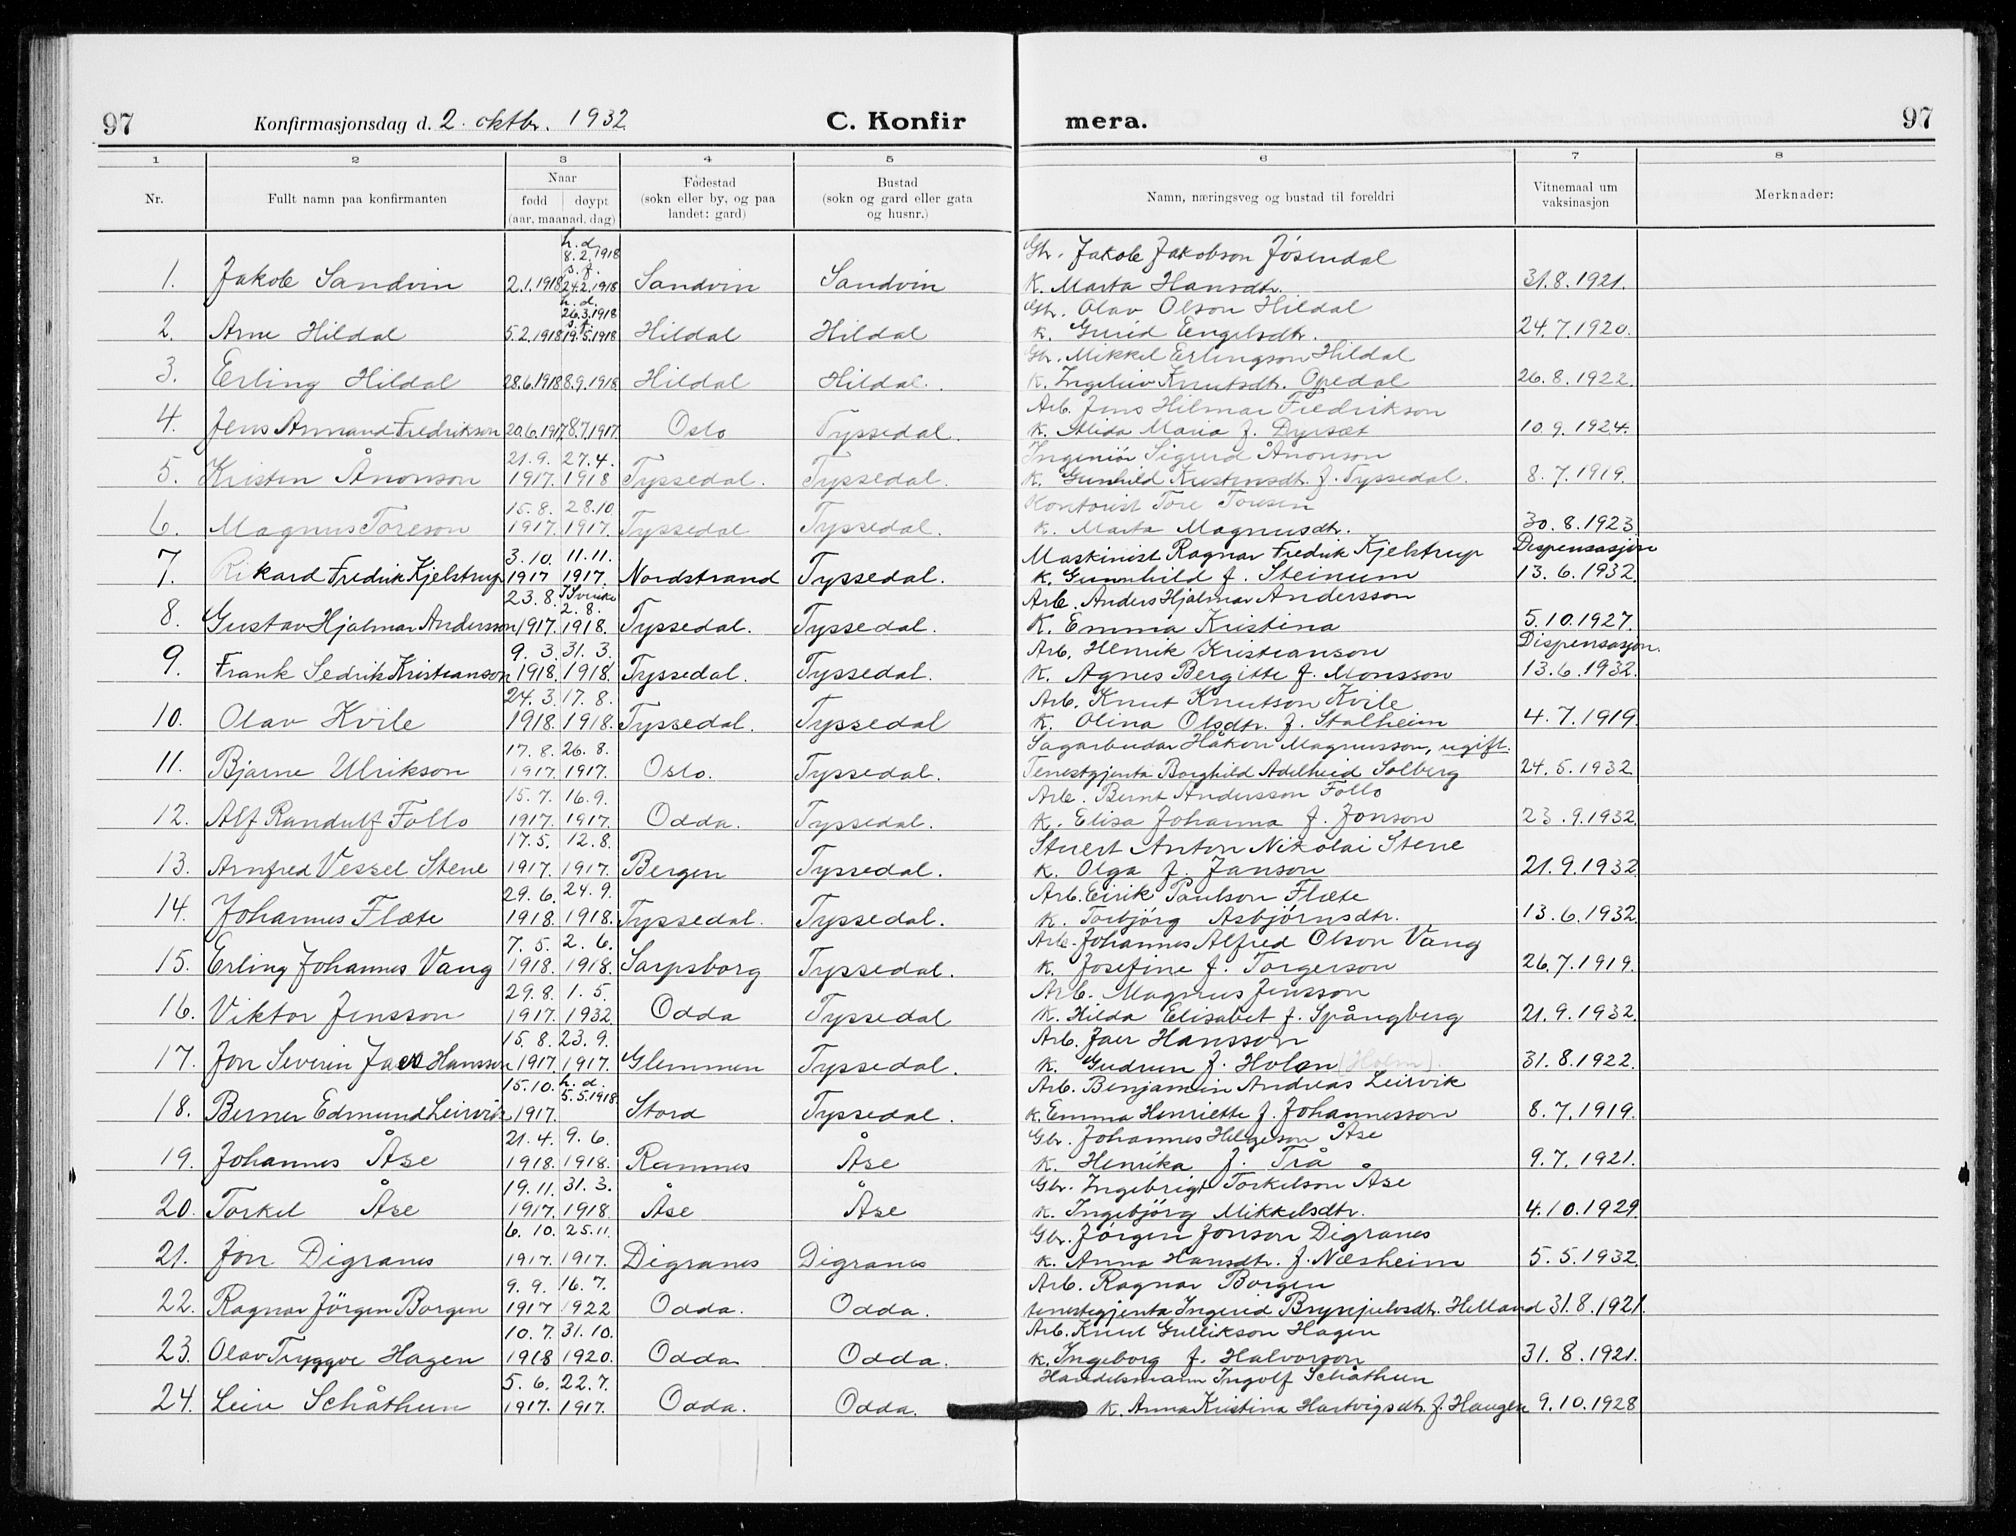 97 Konfirmasjonsdag d. 2. oktbr. 1932 C. Konfir mera. 97
1 2 3 4 5 6 7 8
Nr. Fullt namn paa konfirmanten Naar født døypt (aar, maanad, dag) Fødestad (sokn eller by, og paa landet: gard) Bustad (sokn og gard eller gata og husnr.) Namn, næringsveg og bustad til foreldri Vitnemaal um vaksinasjon Merknader:
h. d. 8.2.1918 s. f. Gbr. Jakob Jakobson Jösendal
1. Jakob Sandvin 2.1.1918 24.2.1918 Sandvin Sandvin K. Marta Hansdtr. 31.8.1921.
h. d. 26.3.1918 s. f. Gbr. Olav Olson Hildal
2. Arne Hildal 5.2.1918 19.5.1918 Hildal Hildal K. Gurid Engelsdtr. 24.7.1920.
Gbr. Mikkel Erlingson Hildal
3. Erling Hildal 28.6.1918 8.9.1918 Hildal Hildal. K. Ingeleiv Knutsdtr. Opedal 26.8.1922.
Arb. Jens Hilmar Fredrikson
4. Jens Armand Fredrikson 20.6.1917 8.7.1917. Oslo Tyssedal. K. Alida Maria f. Dyrsæt 10.9.1924.
21.9. 27.4. Ingeniör Sigurd Ånonson
5. Kristen Ånonson 1917. 1918 Tyssedal. Tyssedal. K. Gunhild Kristensdtr. f. Tyssedal. 8.7.1919.
15.8. 28.10. Kontorist Tore Toresen
6. Magnus Toreson 1917. 1917. Tyssedal Tyssedal. K. Marta Magnusdtr. 30.8.1923
3.10. 11.11. Maskinist Ragnar Fredrik Kjelstrup Dispensasjon
7. Rikard Fredrik Kjelstrup 1917 1917. Nordstrand Tyssedal. K. Gunnhild f. Steinum 13.6.1932.
23.8. I Sverike 2.8. Arb. Anders Hjalmar Andersson
8. Gustav Hjalmar Andersson 1917. 1918. Tyssedal. Tyssedal. K. Emma Kristina 5.10.1927.
9.3. 31.3. Arb. Henrik Kristianson Dispensasjon.
9. Frank Sedrik Kristianson 1918. 1918. Tyssedal. Tyssedal. K. Agnes Bergitte f. Monsson 13.6.1932.
24.3. 17.8. Arb. Knut Knutson Kvile
10. Olav Kvile 1918. 1918. Tyssedal. Tyssedal K. Olina Olsdtr. f. Stalheim 4.7.1919.
17.8. 26.8. Sagarbudar Håkon Magnusson, ugift.
11. Bjarne Ulrikson 1917. 1917. Oslo. Tyssedal. Tenestgjenta Borghild Adelheid Solberg 24.5.1932
15.7. 16.9. Arb. Bernt Andersson Follo
12. Alf Randulf Follo 1917. 1917. Odda. Tyssedal. K. Elisa Johanna f. Jonson 23.9.1932.
17.5. 12.8. Stuert Anton Nikolai Stene
13. Arnfred Vessel Stene 1917. 1917. Bergen Tyssedal. K. Olga f. Janson 21.9.1932
29.6. 24.9. Arb. Eirik Paulson Flæte
14. Johannes Flæte 1918. 1918. Tyssedal. Tyssedal. K. Torbjörg Asbjörnsdtr. 13.6.1932.
7.5. 2.6. Arb. Johannes Alfred Olson Vang
15. Erling Johannes Vang 1918. 1918. Sarpsborg Tyssedal. K. Josefine f. Torgerson 26.7.1919.
29.8. 1.5. Arb. Magnus Jensson
16. Viktor Jensson 1917. 1932. Odda Tyssedal K. Hilda Elisabet f. Spångberg 21.9.1932.
15.8. 23.9. Arb. Jaer Hansson
17. Jon Severin Hansson 1917. 1917. Glemmen Tyssedal. K. Gudrun f. Holen (Holm). 31.8.1922.
15.10. h. d. 5.5.1918. Arb. Benjamin Andreas Leirvik
18. Berner Edmund Leirvik 1917. Stord Tyssedal. K. Emma Henriette f. Johannesson 8.7.1919.
21.4. 9.6. Gbr. Johannes Helgeson Åse
19. Johannes Åse 1918. 1918. Ramnes Åse K. Henrika f. Trå 9.7.1921.
19.11. 31.3. Gbr. Ingebrigt Torkelson Åse
20. Torkel Åse 1917. 1918. Åse Åse K. Ingebjörg Mikkelsdtr. 4.10.1929.
6.10. 25.11. Gbr. Jörgen Jonson Digranes
21. Jon Digranes 1917. 1917. Digranes Digranes K. Anna Hansdtr. f. Næsheim 5.5.1932.
9.9. 16.7. Arb. Ragnar Borgen
22. Ragnar Jörgen Borgen 1917 1922 Odda. Odda. tenestegjenta Ingerid Brynjulvsdtr. Helland 31.8.1921.
10.7. 31.10. Arb. Knut Gullikson Hagen
23. Olav Tryggve Hagen 1918 1920. Odda Odda. K. Ingeborg f. Halvorson 31.8.1921.
5.6. 22.7. Handelsmann Ingolf Schåthun
24. Leiv Schåthun 1917. 1917. Odda. Odda. K. Anna Kristina Hartvigsdtr. f. Haugen 9.10.1928